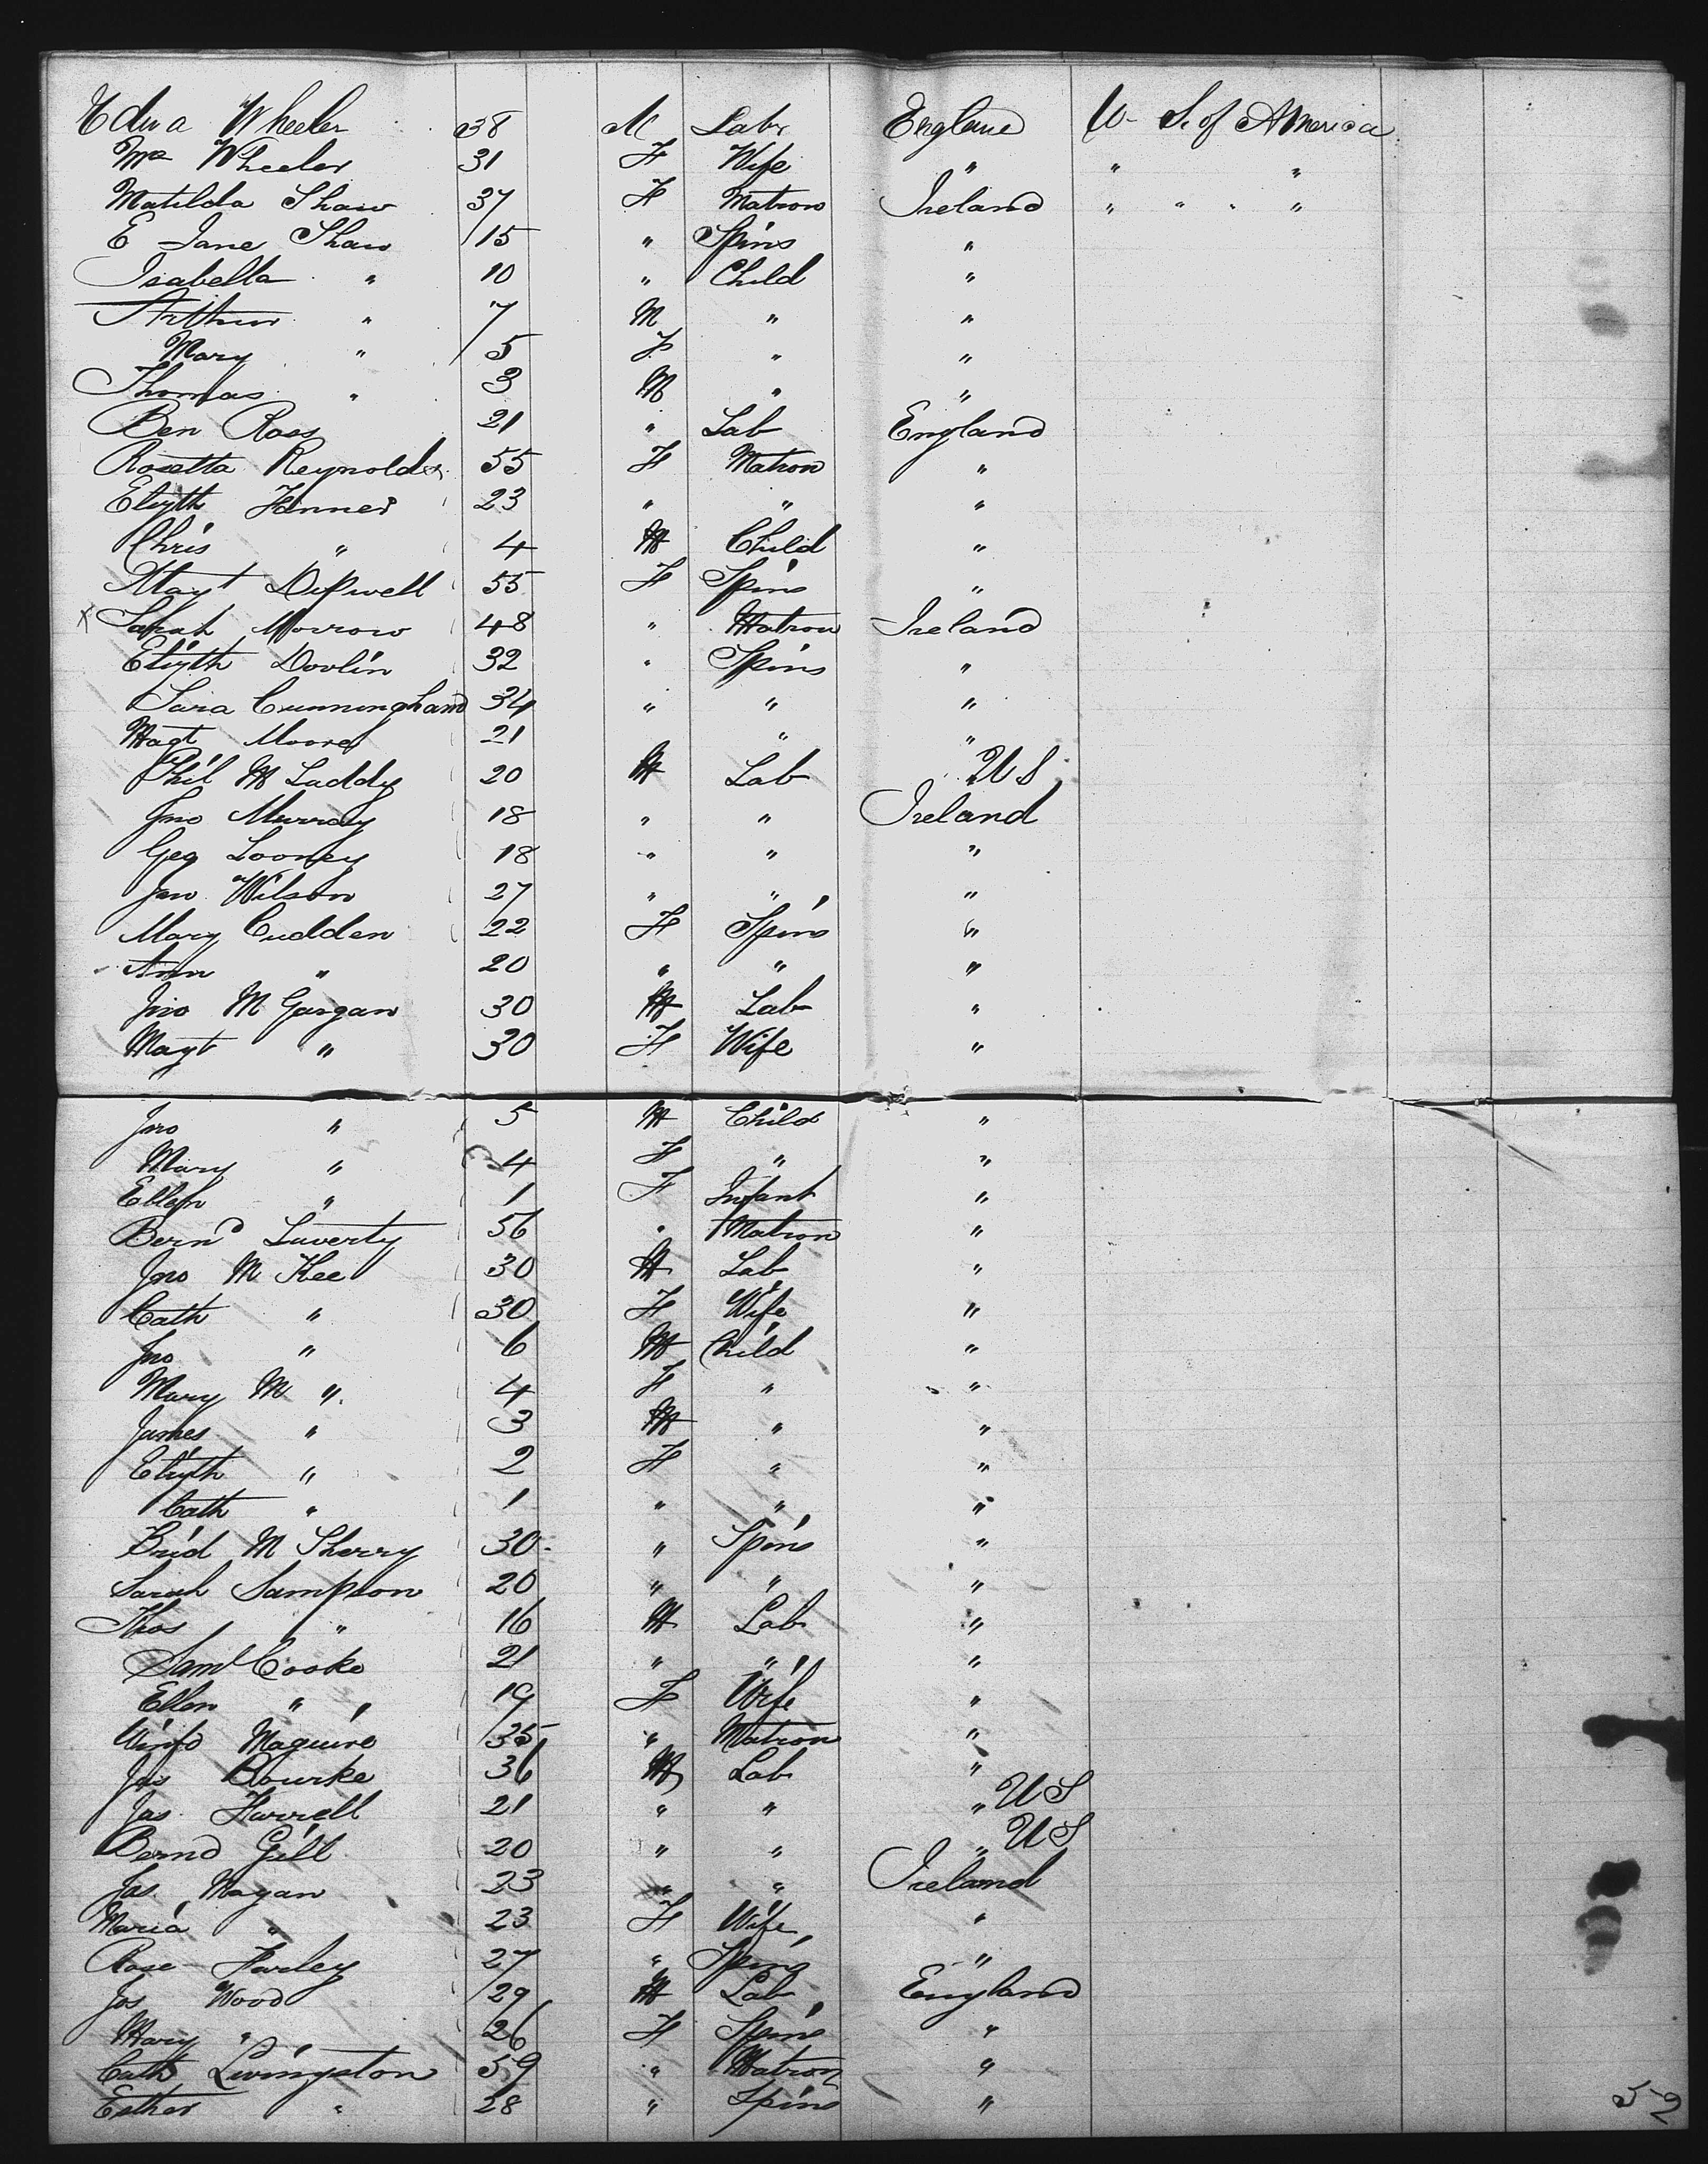 Edwa Wheeler 38 M Labr England U- S. of America
Mrs Wheeler 31 F Wife " " "
Matilda Shaw 37 F Matron Ireland " " " "
E Jane Shaw 15 " Spins "
Isabella " 10 " Child "
Arthur " 7 M " "
Mary " 5 F " "
Thomas " 3 M " "
Ben Ross 21 " Lab England
Rosetta Reynolds 55 F Matron "
Elizth Fenner 23 " " "
Chris " 4 M Child "
Magt 55 F Spins "
Sarah Morrow 48 " Matron Ireland
Elizth Dovlin 32 " Spins "
Sara Cunningham 34 " " "
Magt Moore 21 " "
Phil M Laddy 20 M Lab " U S
Jno Murray 18 " " Ireland
Geo Looney 18 " " "
Jan Wilson 27 " " "
Mary Cudden 22 F Spins "
Ann " 20 " " "
Jno M Gargan 30 M Lab "
Magt " 30 F Wife "
Jno " 5 M Child "
Mary " 4 F " "
Ellen " 1 F Infant "
Bernd Laverty 56 " Matron "
Jno M Kee 30 M Lab "
Cath " 30 F Wife "
Jno " 6 M Child "
Mary M " 4 F " "
James " 3 M " "
Elizth " 2 F " "
Cath " 1 " " "
Brid M Sherry 30 " Spins "
Sarah Sampson 20 " " "
Thos " 16 M Lab "
Saml Cooke 21 " " "
Ellen " 19 F Wife "
Winfd Maguire 35 " Matron "
Jas Bourke 36 M Lab "
Jas Farrell 21 " " " U S
Bernd Gill 20 " " " U S
Jas Magan 23 " " Ireland
Maria " 23 F Wife "
Rose Farley 27 " Spins "
Jos Wood 29 M Lab England
Mary " 26 F Spins "
Cath Livingston 59 " Matron "
Esther " 28 " Spins "
52